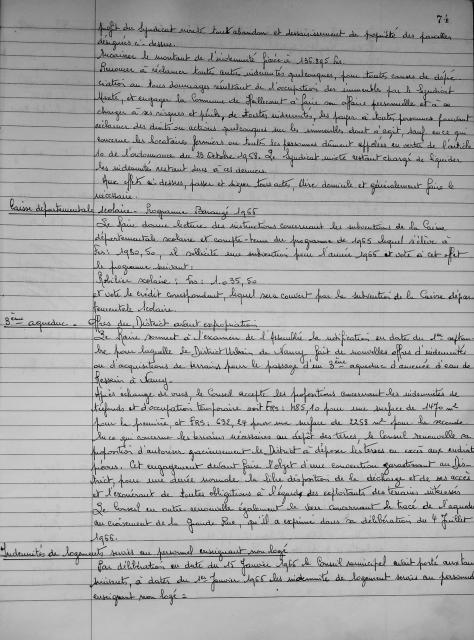 74
profit du Syndicat mixte tout abandon et dessaisissement de propriété des parcelles
désignées ci-dessus.
Encaisser le montant de l'indemnité fixée à 136.895 Frs.
Renoncer à réclamer toute autre indemnité quelconque, pour toutes causes de dépré-
ciation ou tous dommages résultant de l'occupation des immeubles par le Syndicat
Mixte, et engager la Commune de à faire son affaire personnelle et à se
charger à ses risques et périls, de toutes indemnités, les payer à toutes personnes pouvant
réclamer des droits ou actions quelconques sur les immeubles dont s'agit, sauf en ce qui
concerne les locataires fermiers ou toutes les personnes dûment appelées en vertu de l'article
10 de l'ordonnance du 23 Octobre 1958. Le Syndicat mixte restant chargé de liquider
les indemnités restant dues à ces derniers.
Aux effets ci-dessus, passer et signer tous actes, élire domicile et généralement faire le
nécessaire.
Caisse départementale scolaire - Programme Barangé 1966
Le Maire donne lecture des instructions concernant les subventions de la Caisse
départementale scolaire et compte-tenu du programme de 1965 lequel s'élève à
Frs : 1980,50, il sollicite une subvention pour l'année 1966 et vote à cet effet
le programme suivant :
Mobilier scolaire : Frs : 1.035,50
et vote le crédit correspondant, lequel sera couvert par la subvention de la Caisse dépar-
tementale scolaire.
3ème aqueduc - Offres du District avant expropriation
Le Maire soumet à l'examen de l'Assemblée la notification en date du 1er septem-
bre pour laquelle le District Urbain de Nancy fait de nouvelles offres d'indemnités
ou d'acquisitions de terrains pour le passage d'un 3ème aqueduc d'amenée d'eau de
Messein à Nancy.
Après échange de vues, le Conseil accepte les propositions concernant les indemnités de
tréfonds et d'occupation temporaire soit FRS : 485,10 pour une surface de 1470 m²
pour la première, et FRS : 632,24 pour une surface de 2258 m² pour la seconde.
En ce qui concerne les terrains nécessaires au dépôt des terres, le Conseil renouvelle sa
proposition d'autoriser gracieusement le District à déposer les terres en excès aux endroits
prévus. Cet engagement devant faire l'objet d'une convention garantissant au Dis-
trict, pour une durée normale la libre disposition de la décharge et de ses accès
et l'exonérant de toutes obligations à l'égard des exploitants des terrains intéressés.
Le Conseil en outre renouvelle également le vœu concernant le tracé de l'aqueduc
au croisement de la Grande Rue, qu'il a exprimé dans sa délibération du 4 Juillet
1966.
Indemnités de logement servies au personnel enseignant non logé
Par délibération en date du 15 Janvier 1966 le Conseil municipal avait porté aux taux
suivants, à dater du 1er Janvier 1966 les indemnités de logement servies au personnel
enseignant non logé =